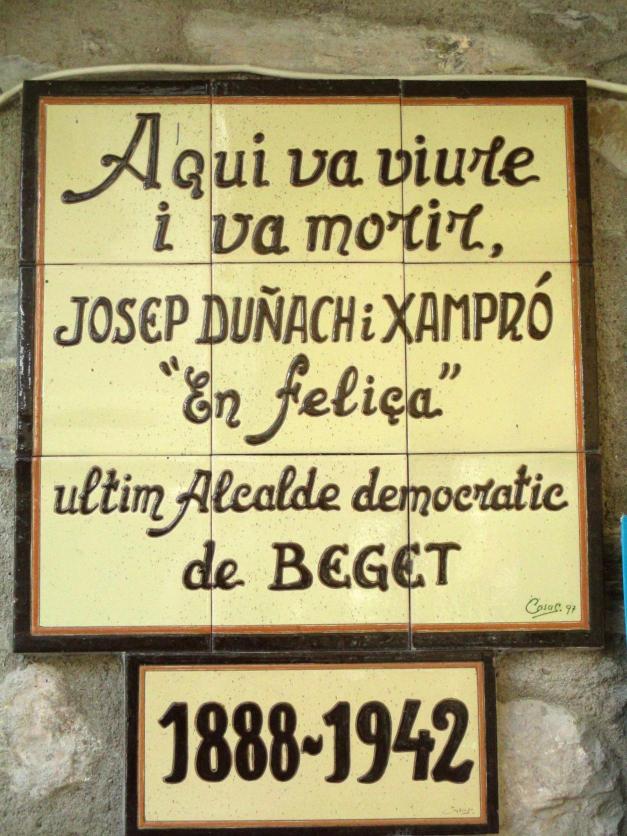 Aqui va viure
i va morir,
JOSEP DUÑACH i XAMPRÓ
"En feliça"
ultim Alcalde democratic
de BEGET
Casas. 97
1888-1942